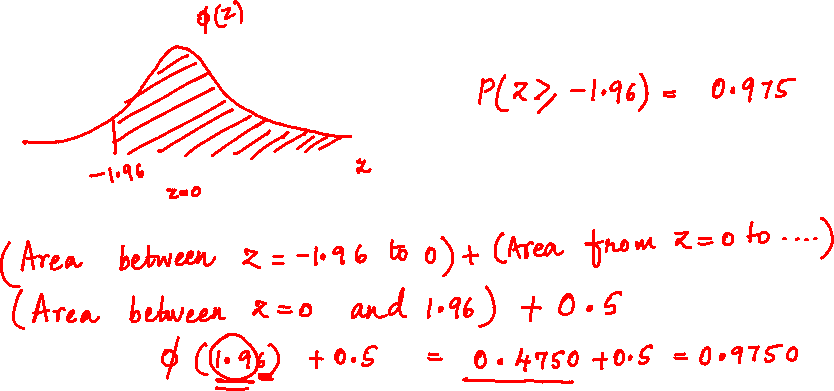 ϕ(z)
P(z ⩾ -1.96) = 0.975
-1.96
z=0
z
(Area between z = -1.96 to 0) + (Area from z=0 to ....)
(Area between z=0 and 1.96) + 0.5
ϕ(1.96) + 0.5 = 0.4750 + 0.5 = 0.9750